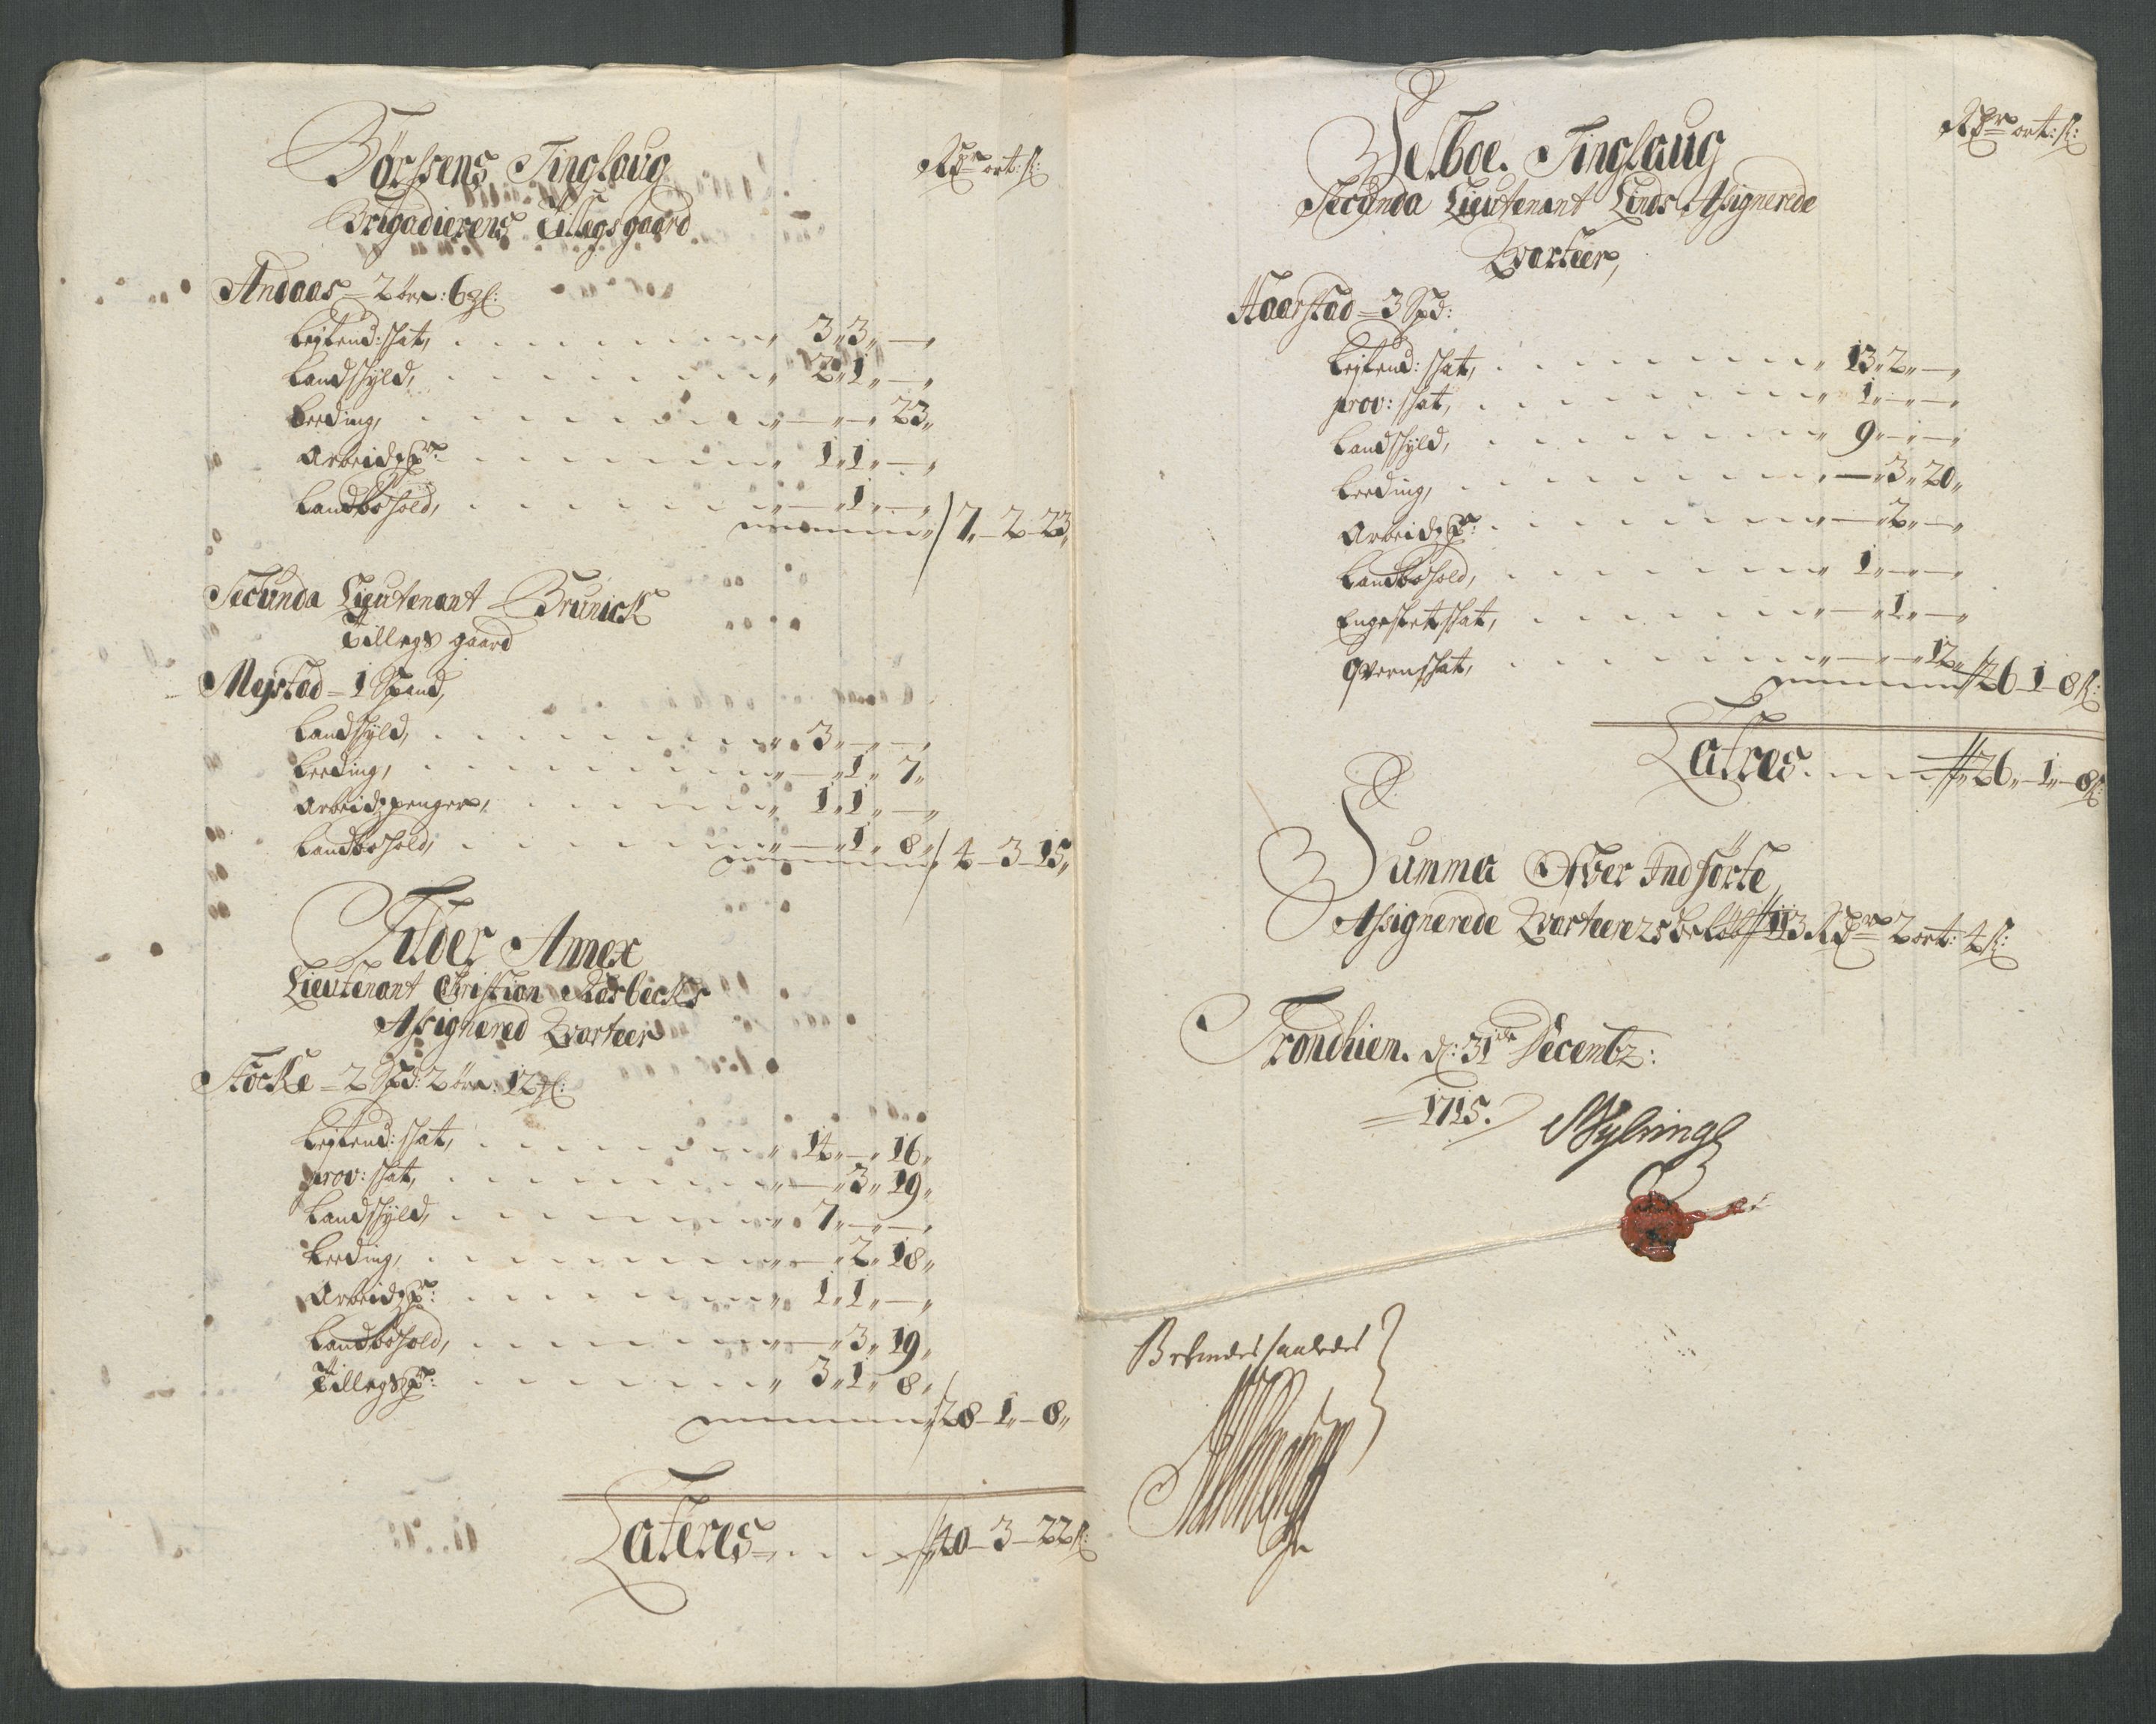 Børssens Tinglaug
Rdr ort: s:
Brigadierens Tillegsgaard
Andaas – 2 ører: 6 gl:
Leylend: skat, 3 „ 3 „ —
Landskyld, 2 „ 1 „ —
Leeding, — „ — „ 23 „
Arbeidz Pr: 1 „ 1 „ —
Landbohold, — „ 1 „ —
7 „ – 2 – 23 „
Secunda Lieutenant Brunick
Tillegs gaard
Mejstad – 1 Spand,
Landskyld, 3 „ — „ —
Leeding, — „ 1 „ 7 „
Arbeidzpenger, 1 „ 1 „ —
Landbohold, — „ 1 „ 8 „
4 – 3 – 15 „
Tilder Annex
Lieutenant Christian Aasbecks
Assignered Qvarteer
Støcke – 2 Spd: 2 ører: 12 gl:
Leylend: skat, 14 „ — „ 16 „
prov: skat, — „ 3 „ 19 „
Landskyld, 7 „ — „ —
Leeding, — „ 2 „ 18 „
Arbeidz Pr: 1 „ 1 „ —
Landbohold, — „ 3 „ 19 „
Tillegs Pr: 3 „ 1 „ 8 „
28 – 1 „ – 8 „
Lateres 40 – 3 – 22 s:
Selboe Tinglaug
Rdr ort: s:
Secunda Lieutenant Linds Assignerede
Qvarteer,
Aaerstad – 3 Spd:
Leylend: skat, 13 „ 2 „ —
prov: skat, 1 „ — „ —
Landskyld, 9 „ — „ —
Leeding, — „ 3 „ 20 „
Arbeidz Pr: — „ 2 „ —
Landbohold, 1 „ — „ —
Engesletskat, — „ 1 „ —
Qvernskat, — „ — „ 12 „
26 – 1 – 8 s:
Latres 26 „ – 1 „ – 8 s:
Summa Ofver Indførte
Assignerede Qvarteerers beløb 113 Rdr 2 ort: 4 s:
Trondhiem d: 31de Decembr:
1715.
Befindes saaledes